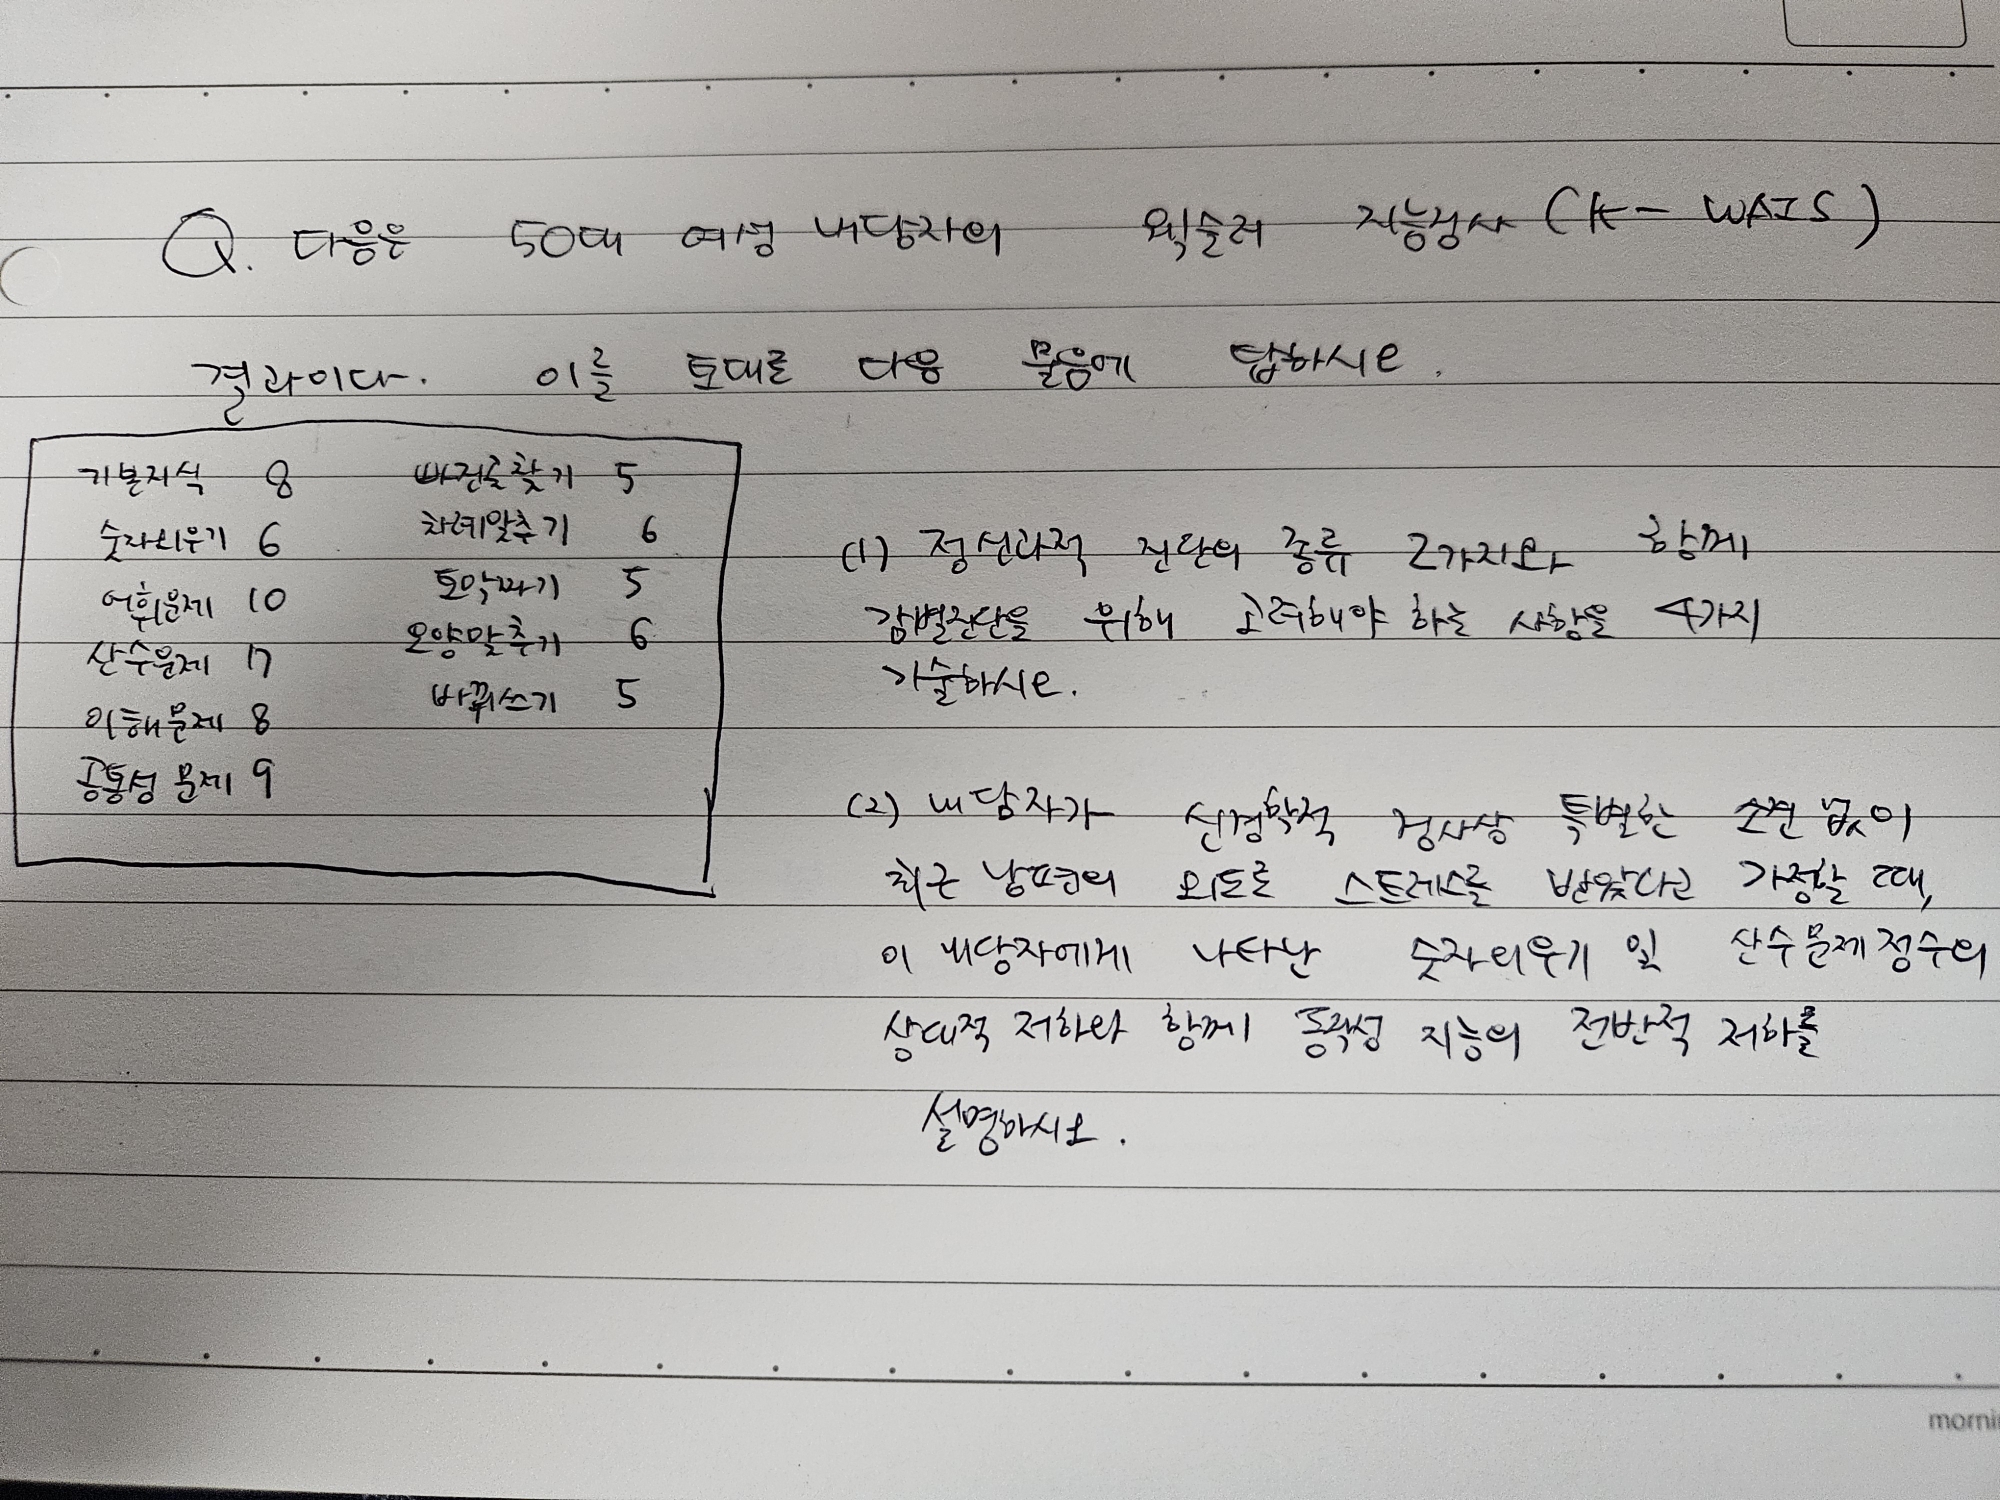 Q. 다음은 50대 여성 내담자의 웩슬러 지능검사(K-WAIS)
결과이다. 이를 토대로 다음 물음에 답하시오.
기본지식 8 빠진곳찾기 5
숫자외우기 6 차례맞추기 6
어휘문제 10 토막짜기 5
산수문제 17 모양맞추기 6
이해문제 8 바꿔쓰기 5
공통성 문제 9
(1) 정신과적 진단의 종류 2가지와 함께
감별진단을 위해 고려해야 하는 사항을 4가지
기술하시오.
(2) 내담자가 신경학적 검사상 특별한 소견 없이
최근 남편의 외도로 스트레스를 받았다고 가정할 때,
이 내담자에게 나타난 숫자외우기 및 산수문제 점수의
상대적 저하와 함께 동작성 지능의 전반적 저하를
설명하시오.
morni